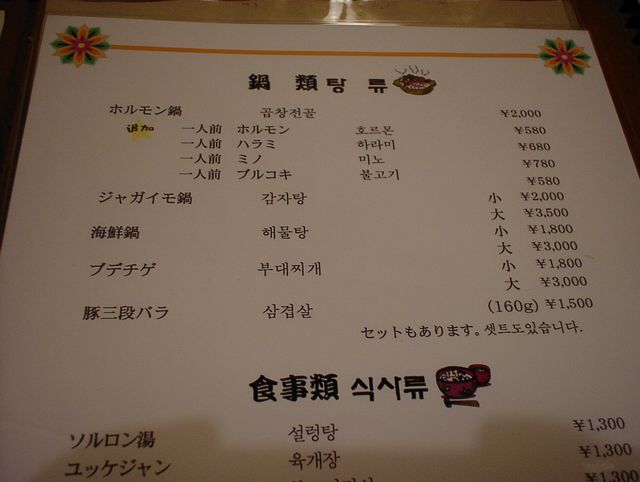 鍋 類 탕 류
ホルモン鍋 곱창전골 ¥2,000
追加 一人前 ホルモン 호르몬 ¥580
一人前 ハラミ 하라미 ¥680
一人前 ミノ 미노 ¥780
一人前 ブルコキ 불고기 ¥580
ジャガイモ鍋 감자탕 小 ¥2,000
大 ¥3,500
海鮮鍋 해물탕 小 ¥1,800
大 ¥3,000
ブデチゲ 부대찌개 小 ¥1,800
大 ¥3,000
豚三段バラ 삼겹살 (160g) ¥1,500
セットもあります。셋트도있습니다.
食事類 식사류
ソルロン湯 설렁탕 ¥1,300
ユッケジャン 육개장 ¥1,300
¥1,300